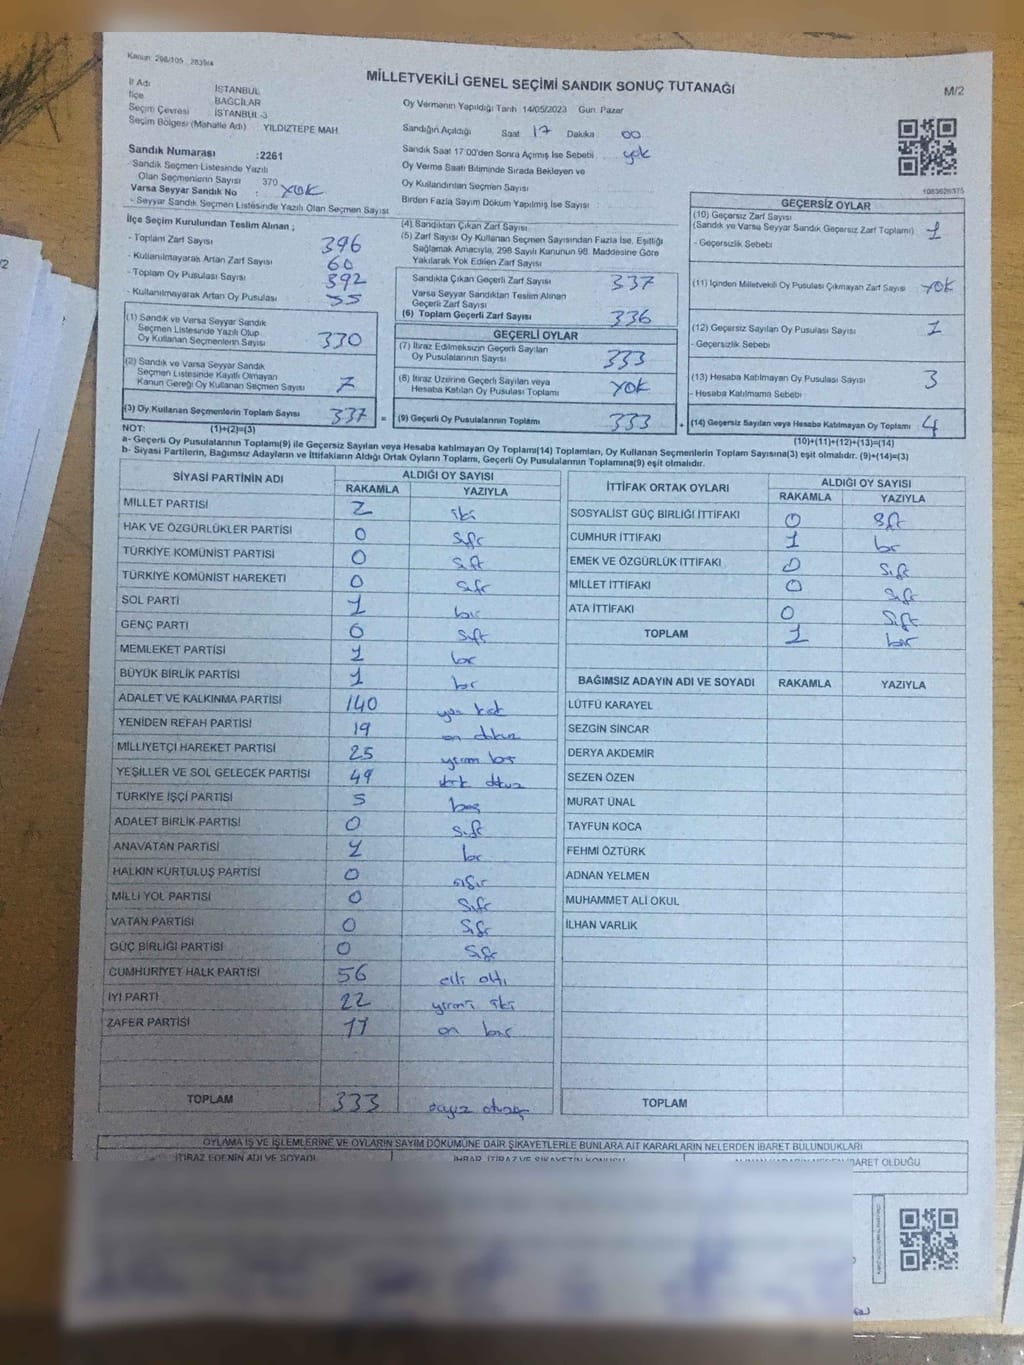 Kanun: 298/105 2839/4
MİLLETVEKİLİ GENEL SEÇİMİ SANDIK SONUÇ TUTANAĞI
M/2
İl Adı İSTANBUL
İlçe BAĞCILAR
Seçim Çevresi İSTANBUL-3
Seçim Bölgesi (Mahalle Adı) YILDIZTEPE MAH.
Sandık Numarası :2261
Sandık Seçmen Listesinde Yazılı
Olan Seçmenlerin Sayısı 370
Varsa Seyyar Sandık No : YOK
- Seyyar Sandık Seçmen Listesinde Yazılı Olan Seçmen Sayısı
Oy Vermenin Yapıldığı Tarih 14/05/2023 Gün Pazar
Sandığın Açıldığı Saat 17 Dakika 00
Sandık Saat 17:00'den Sonra Açılmış İse Sebebi yok
Oy Verme Saati Bitiminde Sırada Bekleyen ve
Oy Kullandırılan Seçmen Sayısı
Birden Fazla Sayım Döküm Yapılmış İse Sayısı :
1083628375
İlçe Seçim Kurulundan Teslim Alınan ;
- Toplam Zarf Sayısı 396
- Kullanılmayarak Artan Zarf Sayısı 60
- Toplam Oy Pusulası Sayısı 392
- Kullanılmayarak Artan Oy Pusulası 55
(1) Sandık ve Varsa Seyyar Sandık
Seçmen Listesinde Yazılı Olup
Oy Kullanan Seçmenlerin Sayısı 330
(2) Sandık ve Varsa Seyyar Sandık
Seçmen Listesinde Kayıtlı Olmayan
Kanun Gereği Oy Kullanan Seçmen Sayısı 7
(3) Oy Kullanan Seçmenlerin Toplam Sayısı 337 =
(4) Sandıktan Çıkan Zarf Sayısı
(5) Zarf Sayısı Oy Kullanan Seçmen Sayısından Fazla İse, Eşitliği
Sağlamak Amacıyla, 298 Sayılı Kanunun 98. Maddesine Göre
Yakılarak Yok Edilen Zarf Sayısı
Sandıkta Çıkan Geçerli Zarf Sayısı 337
Varsa Seyyar Sandıktan Teslim Alınan
Geçerli Zarf Sayısı
(6) Toplam Geçerli Zarf Sayısı 336
GEÇERLİ OYLAR
(7) İtiraz Edilmeksizin Geçerli Sayılan
Oy Pusulalarının Sayısı 333
(8) İtiraz Üzerine Geçerli Sayılan veya
Hesaba Katılan Oy Pusulası Toplamı YOK
(9) Geçerli Oy Pusulalarının Toplamı 333 +
GEÇERSİZ OYLAR
(10) Geçersiz Zarf Sayısı
(Sandık ve Varsa Seyyar Sandık Geçersiz Zarf Toplamı) 1
- Geçersizlik Sebebi
(11) İçinden Milletvekili Oy Pusulası Çıkmayan Zarf Sayısı YOK
(12) Geçersiz Sayılan Oy Pusulası Sayısı 1
- Geçersizlik Sebebi
(13) Hesaba Katılmayan Oy Pusulası Sayısı 3
- Hesaba Katılmama Sebebi
(14) Geçersiz Sayılan veya Hesaba Katılmayan Oy Toplamı 4
NOT: (1)+(2)=(3)
(10)+(11)+(12)+(13)=(14)
a- Geçerli Oy Pusulalarının Toplamı(9) ile Geçersiz Sayılan veya Hesaba katılmayan Oy Toplamı(14) Toplamları, Oy Kullanan Seçmenlerin Toplam Sayısına(3) eşit olmalıdır. (9)+(14)=(3)
b- Siyasi Partilerin, Bağımsız Adayların ve İttifakların Aldığı Ortak Oyların Toplamı, Geçerli Oy Pusulalarının Toplamına(9) eşit olmalıdır.
SİYASİ PARTİNİN ADI ALDIĞI OY SAYISI
RAKAMLA YAZIYLA
MİLLET PARTİSİ 2 iki
HAK VE ÖZGÜRLÜKLER PARTİSİ 0 sıfır
TÜRKİYE KOMÜNİST PARTİSİ 0 sıfır
TÜRKİYE KOMÜNİST HAREKETİ 0 sıfır
SOL PARTİ 1 bir
GENÇ PARTİ 0 sıfır
MEMLEKET PARTİSİ 1 bir
BÜYÜK BİRLİK PARTİSİ 1 bir
ADALET VE KALKINMA PARTİSİ 140 yüz kırk
YENİDEN REFAH PARTİSİ 19 on dokuz
MİLLİYETÇİ HAREKET PARTİSİ 25 yirmi beş
YEŞİLLER VE SOL GELECEK PARTİSİ 49 kırk dokuz
TÜRKİYE İŞÇİ PARTİSİ 5 beş
ADALET BİRLİK PARTİSİ 0 sıfır
ANAVATAN PARTİSİ 1 bir
HALKIN KURTULUŞ PARTİSİ 0 sıfır
MİLLİ YOL PARTİSİ 0 sıfır
VATAN PARTİSİ 0 sıfır
GÜÇ BİRLİĞİ PARTİSİ 0 sıfır
CUMHURİYET HALK PARTİSİ 56 elli altı
İYİ PARTİ 22 yirmi iki
ZAFER PARTİSİ 11 on bir
TOPLAM 333
İTTİFAK ORTAK OYLARI ALDIĞI OY SAYISI
RAKAMLA YAZIYLA
SOSYALİST GÜÇ BİRLİĞİ İTTİFAKI 0 sıfır
CUMHUR İTTİFAKI 1 bir
EMEK VE ÖZGÜRLÜK İTTİFAKI 0 sıfır
MİLLET İTTİFAKI 0 sıfır
ATA İTTİFAKI 0 sıfır
TOPLAM 1 bir
BAĞIMSIZ ADAYIN ADI VE SOYADI RAKAMLA YAZIYLA
LÜTFÜ KARAYEL
SEZGİN SİNCAR
DERYA AKDEMİR
SEZEN ÖZEN
MURAT ÜNAL
TAYFUN KOCA
FEHMİ ÖZTÜRK
ADNAN YELMEN
MUHAMMET ALİ OKUL
İLHAN VARLIK
TOPLAM
OYLAMA İŞ VE İŞLEMLERİNE VE OYLARIN SAYIM DÖKÜMÜNE DAİR ŞİKAYETLERLE BUNLARA AİT KARARLARIN NELERDEN İBARET BULUNDUKLARI
İTİRAZ EDENİN ADI VE SOYADI